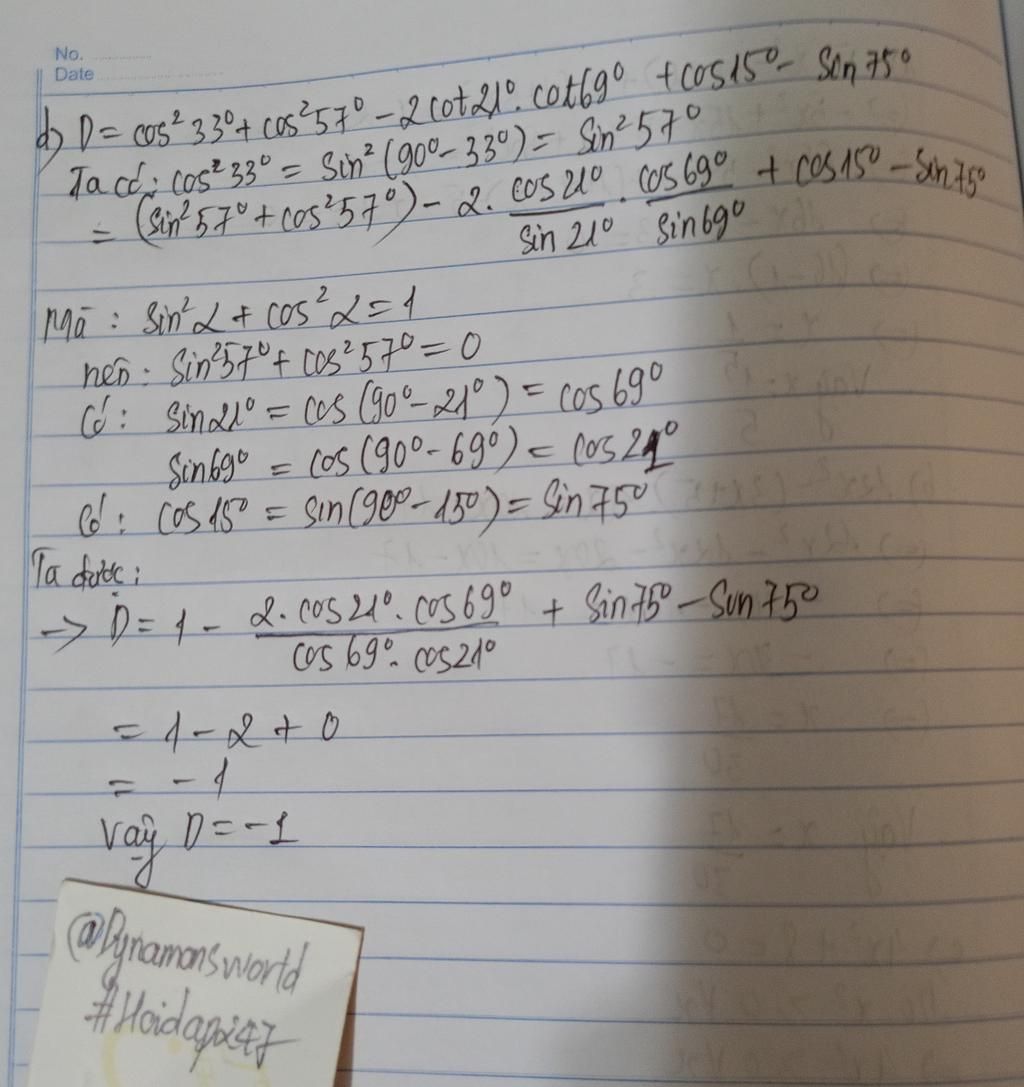 No.
Date
d) D = cos² 33⁰ + cos² 57⁰ - 2 cot 21⁰. cot 69⁰ + cos 15⁰ - Sin 75⁰
Ta có: cos² 33⁰ = Sin² (90⁰ - 33⁰) = Sin² 57⁰
= (Sin² 57⁰ + cos² 57⁰) - 2. cos 21⁰/sin 21⁰ . cos 69⁰/sin 69⁰ + cos 15⁰ - Sin 75⁰
Mà : Sin² α + cos² α = 1
nên : Sin² 57⁰ + cos² 57⁰ = 0
Có : Sin 21⁰ = cos (90⁰ - 21⁰) = cos 69⁰
Sin 69⁰ = cos (90⁰ - 69⁰) = cos 21⁰
Có : cos 15⁰ = sin (90⁰ - 15⁰) = Sin 75⁰
Ta được :
→ D = 1 - 2. cos 21⁰. cos 69⁰/cos 69⁰. cos 21⁰ + Sin 75⁰ - Sin 75⁰
= 1 - 2 + 0
= - 1
Vậy D = - 1
@Dynamonsworld
#Hoidap247